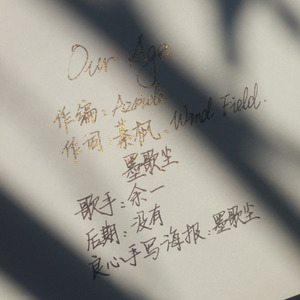 Our Age
作编：Azouki
作词：慕枫、Wind Field.
墨歌尘
歌手：余一
后期：没有
良心手写海报：墨歌尘